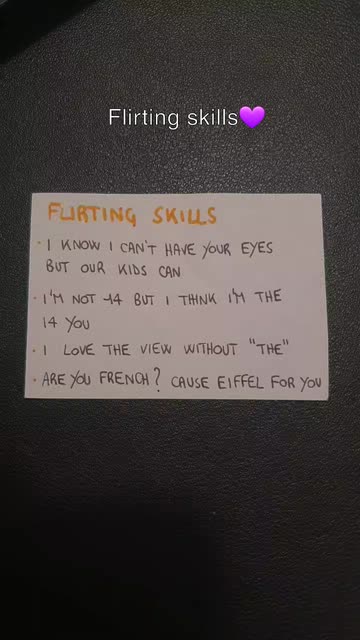 Flirting skills💜
FLIRTING SKILLS
· I KNOW I CAN'T HAVE YOUR EYES
BUT OUR KIDS CAN
· I'M NOT -14 BUT I THINK I'M THE
14 YOU
· I LOVE THE VIEW WITHOUT "THE"
· ARE YOU FRENCH? CAUSE EIFFEL FOR YOU